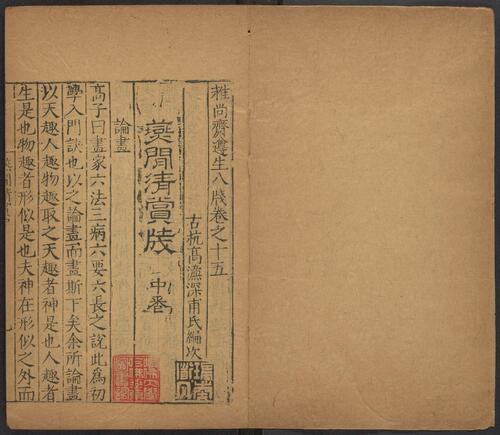 雅尚齋遵生八牋卷之十五
古杭高濂深甫氏編次
燕閒清賞牋 中卷
論畫
高子曰畫家六法三病六要六長之說此為初
學入門訣也以之論畫而畫斯下矣余所論畫
以天趣人趣物趣取之天趣者神是也人趣者
生是也物趣者形似是也夫神在形似之外而